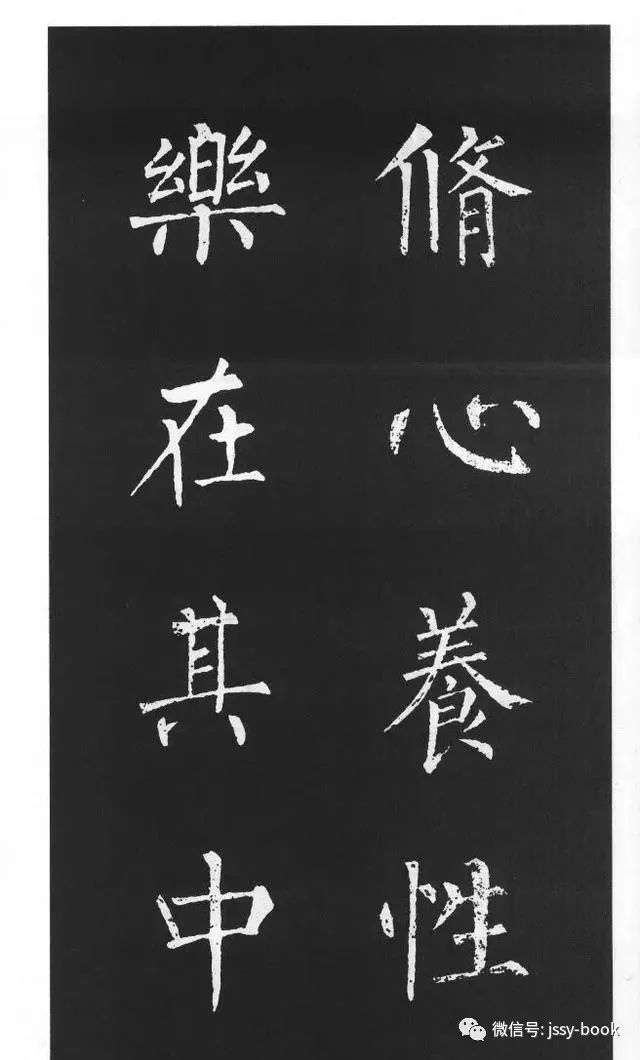 脩心養性
樂在其中
微信号: jssy-book